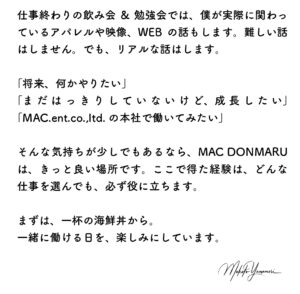 仕事終わりの飲み会 & 勉強会では、僕が実際に関わっ
ているアパレルや映像、WEB の話もします。難しい話
はしません。でも、リアルな話はします。
「将来、何かやりたい」
「まだはっきりしていないけど、成長したい」
「MAC.ent.co.,ltd. の本社で働いてみたい」
そんな気持ちが少しでもあるなら、MAC DONMARU
は、きっと良い場所です。ここで得た経験は、どんな
仕事を選んでも、必ず役に立ちます。
まずは、一杯の海鮮丼から。
一緒に働ける日を、楽しみにしています。